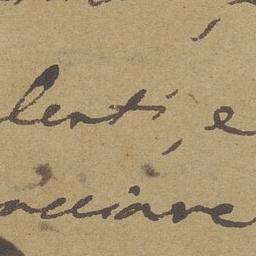 lenti, e
acciare